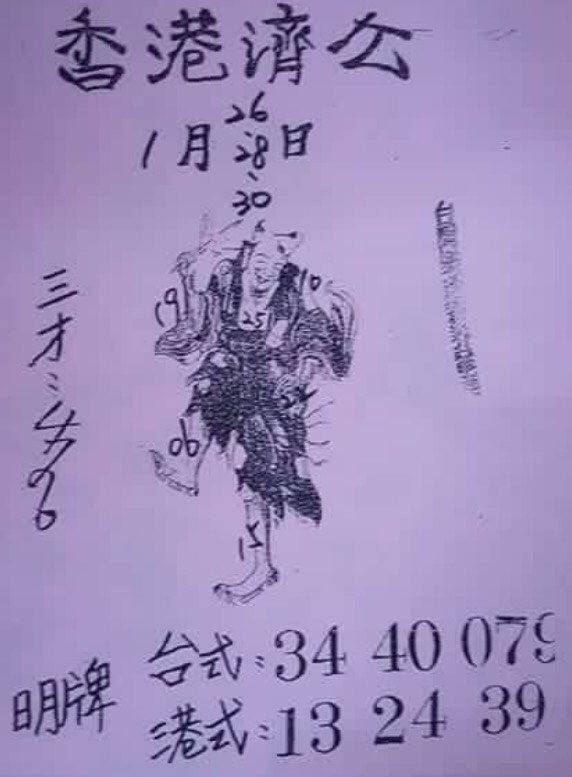 香港濟公
1月26、28、30日
三才：490
19
10
25
06
15
明牌
台式：34 40 079
港式：13 24 39